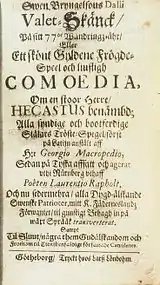 Swen Bryngelssons Dalii
Valet-Skänck/
På sin 77de Wandrings-åhr/
Eller
Ett skönt Gyldene Frögde-
Speel och lustigh
COMOEDIA,
Om en stoor Herre/
HECASTUS benämbd;
Alla syndige och bootferdige
Siälars Tröste-Spegel/först
på Latijn anstält aff
Hr Georgio Macropedio,
Sedan på Tyska affsatt och agerat
uthi Nürnberg uthaff
Poëten Laurentio Rapholt,
Och nu sidermehra/ alla Dygd-älskande
Swenske Patrioter, mitt K. Fädernesslandz
Förwanter/ til gunstigt Behagh in på
wårt Språåk transverterat.
Sampt
Til Slutet/ några them Gudälskandom och
Götheborg/ Tryckt hoos Lars Lindblom